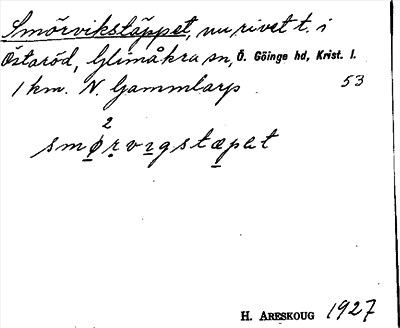 Smörvikstäppet, nu rivet t. i
Östaröd, Glimåkra sn, Ö. Göinge hd, Krist. l.
1 km. N. Gammlarp 53
2
smørvıgstæpet
H. ARESKOUG 1927